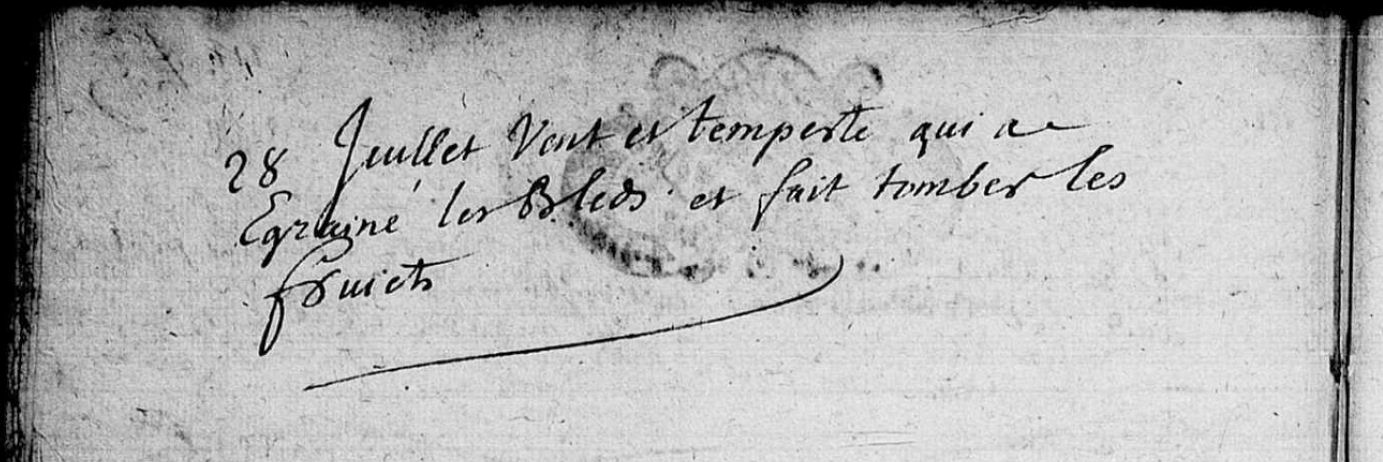 28 Juillet Vent et tempeste qui a
Egrainé les Bleds et fait tomber les
fruicts